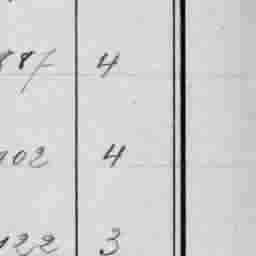 887 4
102 4
122 3